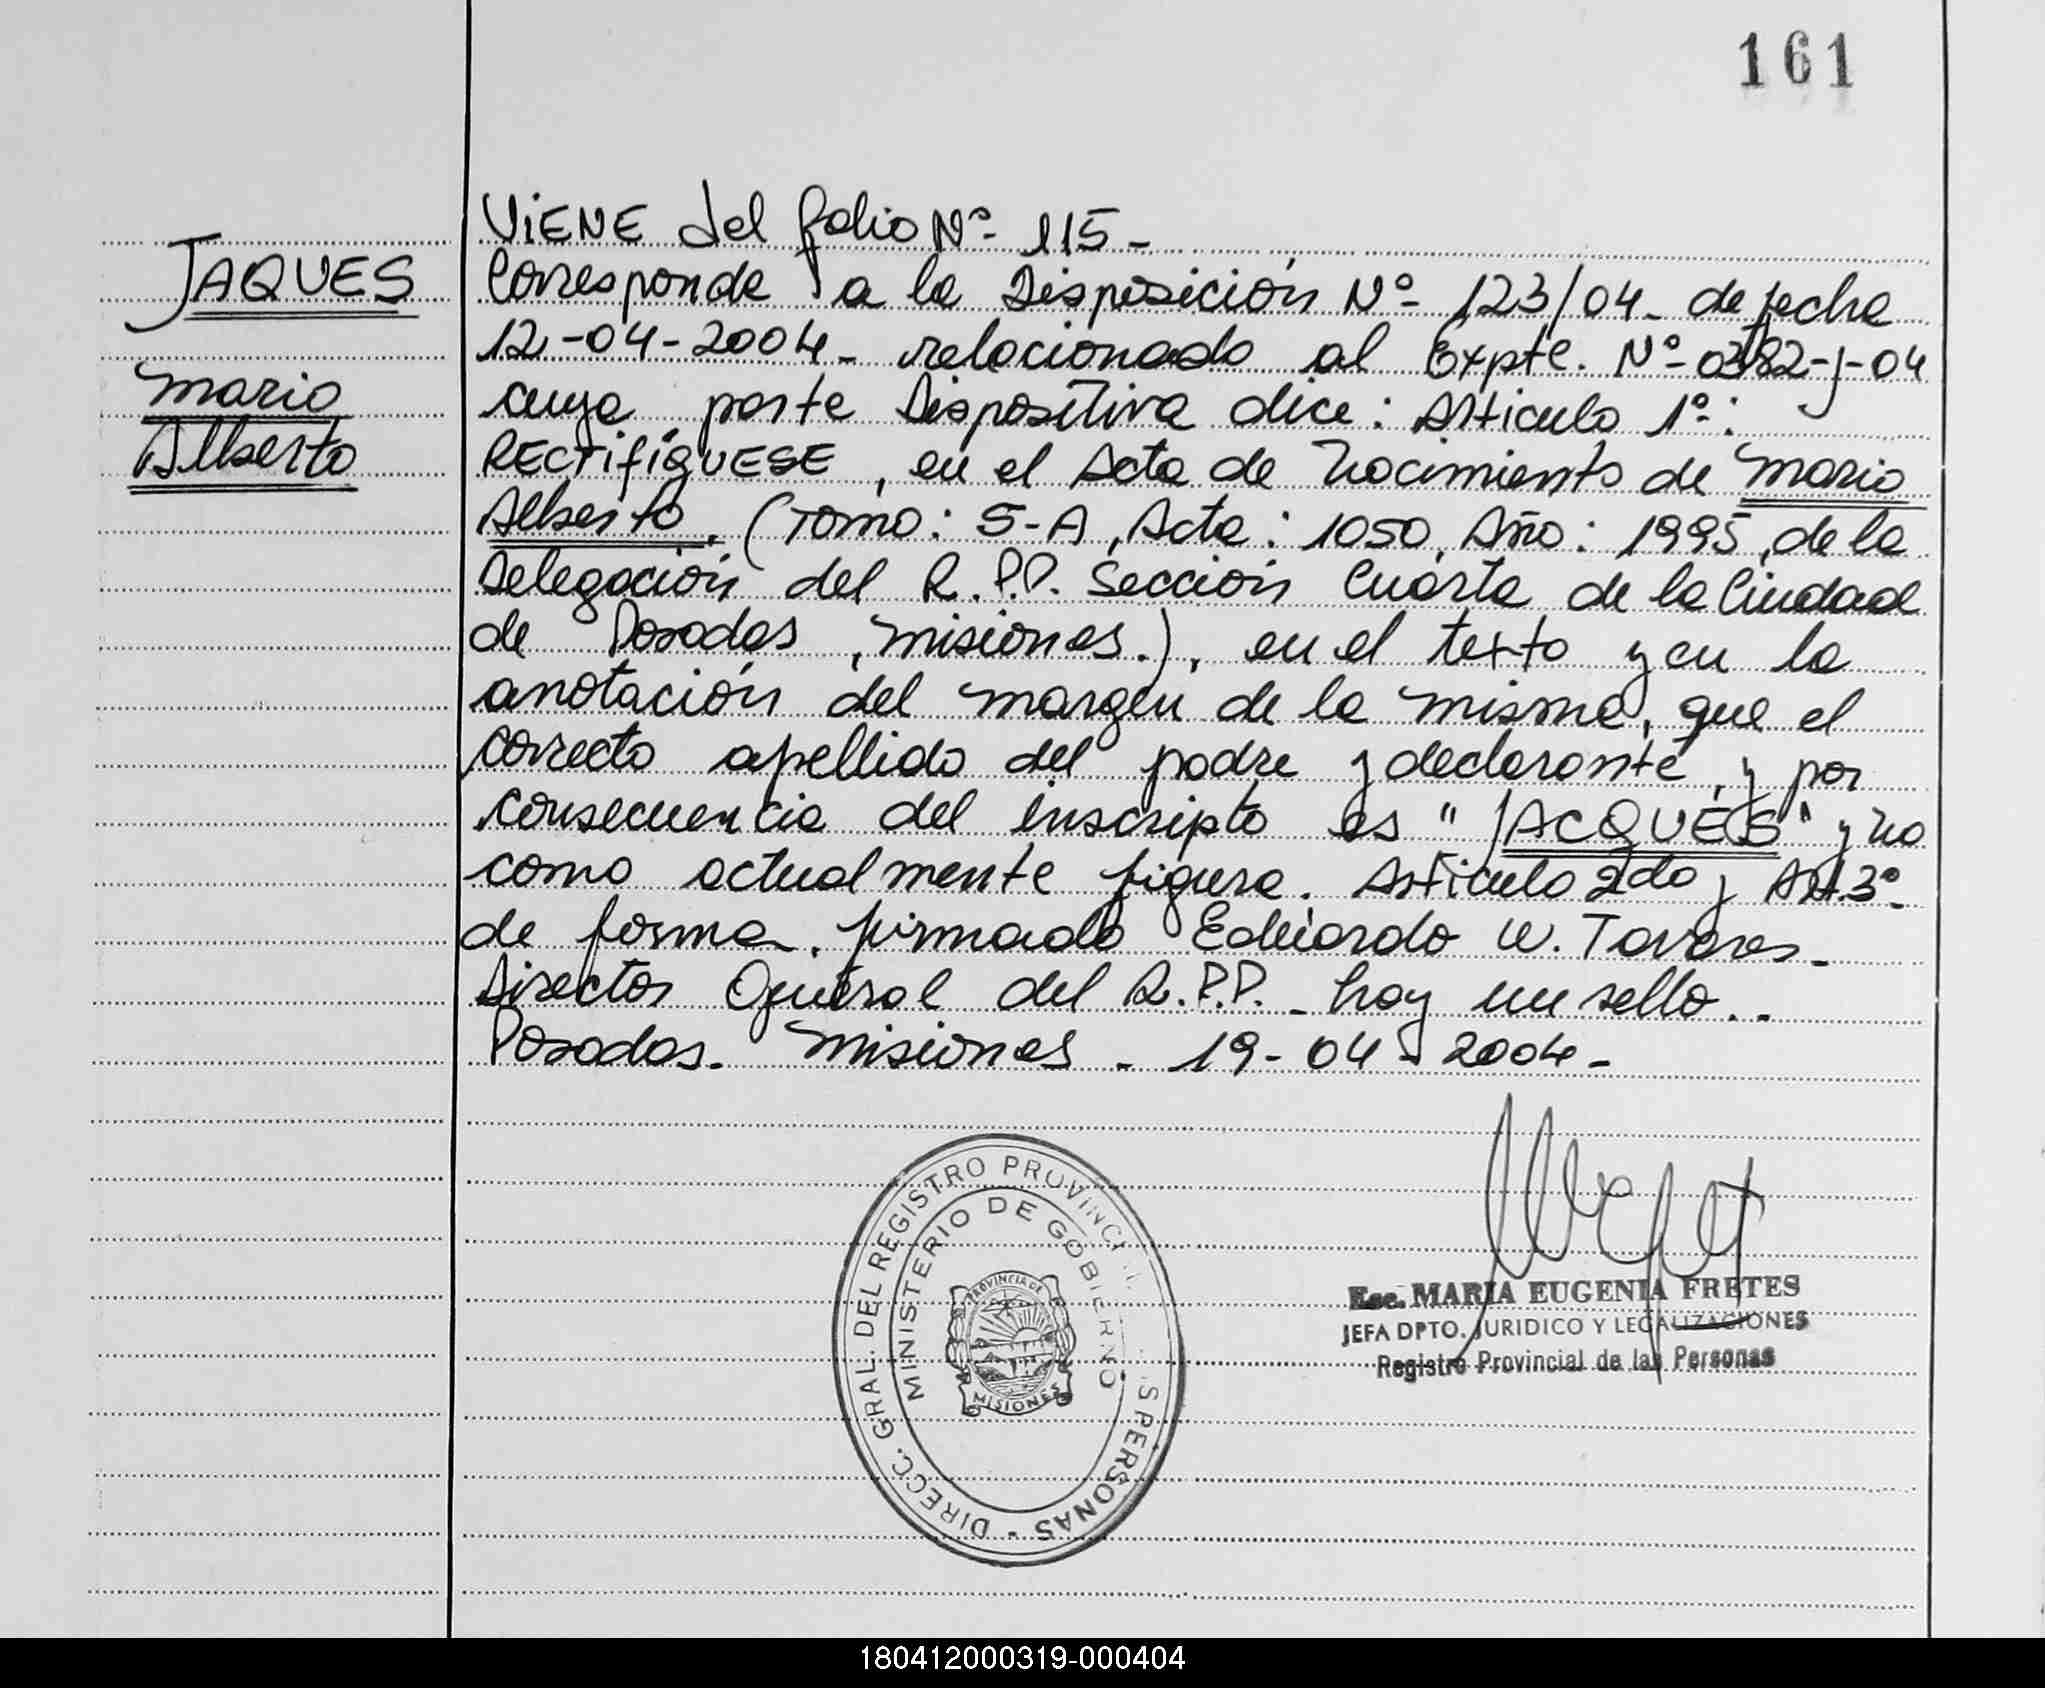 161
JAQUES
Mario
Alberto
VIENE del folio Nº 115-
Corresponde a la Disposición Nº 123/04- de fecha
12-04-2004- relacionado al Expte. Nº -J-04
cuya parte Dispositiva dice: Articulo 1º:
RECTIFIQUESE, en el Acta de Nacimiento de Mario
Alberto, (Tomo: 5-A, Acta: 1050, Año: 1995, de la
Delegación del R.P.P. Sección Cuarta de la Ciudad
de Posadas, Misiones.), en el texto y en la
anotación del margen de la misma, que el
correcto apellido del padre y declarante, y por
consecuencia del inscripto es "JACQUES" y no
como actualmente figura. Articulo 2do y Art.3º-
de forma. firmado Eduardo W. Tavares-
Director General del R.P.P.- hay un sello..-
Posadas- Misiones - 19-04-2004-
DIRECC. GRAL. DEL REGISTRO PROVINCIAL S PERSONAS -
MINISTERIO DE GOBIERNO
PROVINCIA DE
MISIONES
Esc. MARIA EUGENIA FRETES
JEFA DPTO. JURIDICO Y LEGALIZACIONES
Registro Provincial de las Personas
180412000319-000404